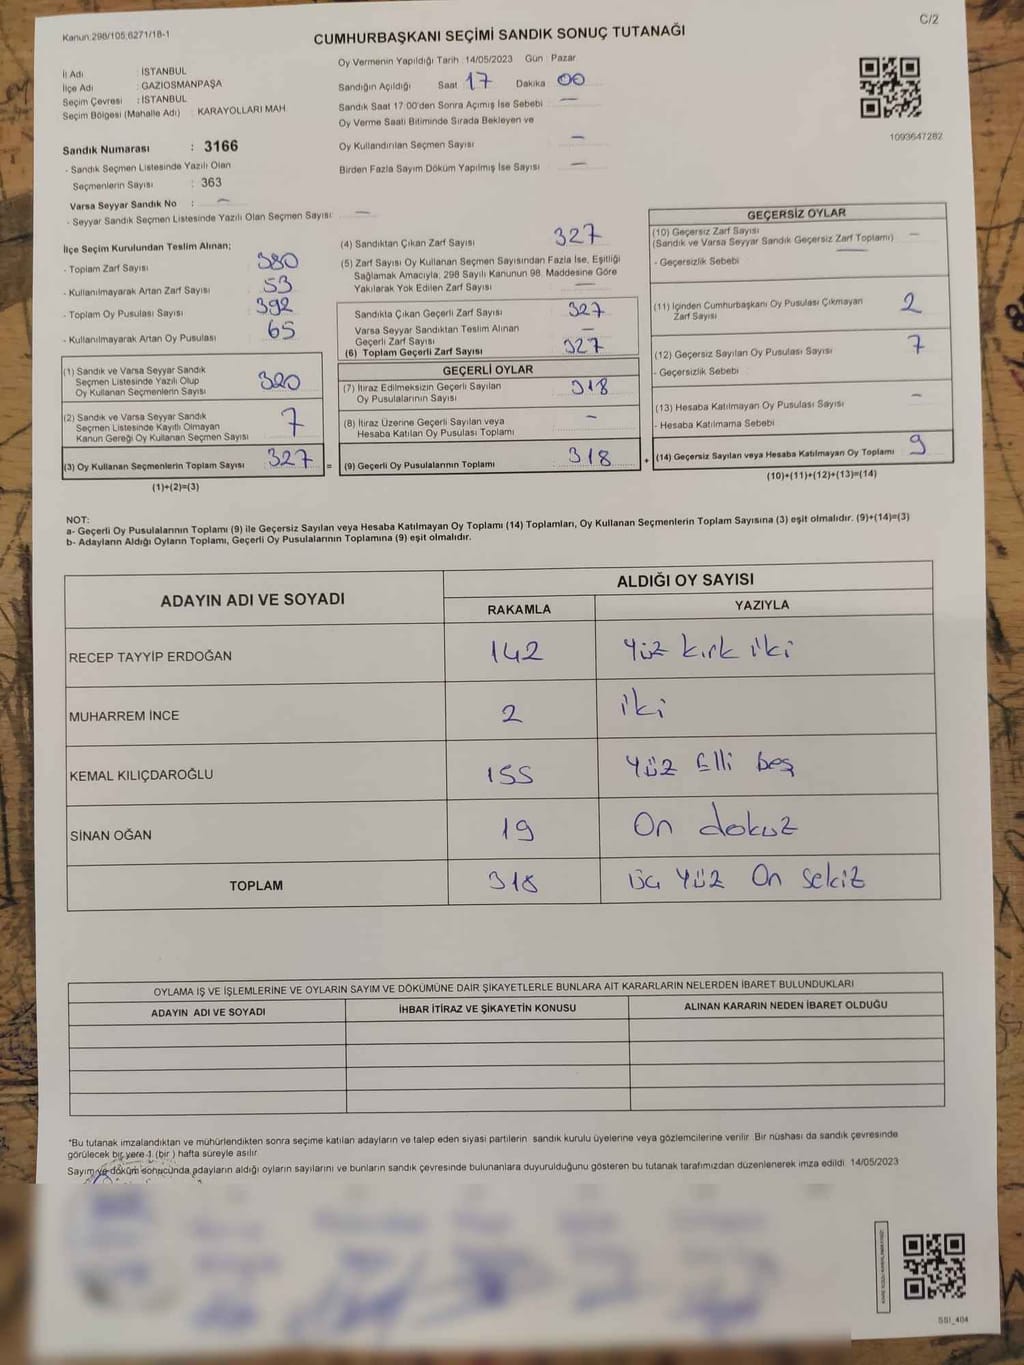 Kanun:298/105,6271/18-1
C/2
CUMHURBAŞKANI SEÇİMİ SANDIK SONUÇ TUTANAĞI
İl Adı : İSTANBUL
İlçe Adı : GAZİOSMANPAŞA
Seçim Çevresi : İSTANBUL
Seçim Bölgesi (Mahalle Adı) : KARAYOLLARI MAH
Sandık Numarası : 3166
- Sandık Seçmen Listesinde Yazılı Olan
Seçmenlerin Sayısı : 363
Varsa Seyyar Sandık No : —
- Seyyar Sandık Seçmen Listesinde Yazılı Olan Seçmen Sayısı: —
Oy Vermenin Yapıldığı Tarih :14/05/2023 Gün : Pazar
Sandığın Açıldığı Saat 17 Dakika 00
Sandık Saat 17.00'den Sonra Açımış İse Sebebi —
Oy Verme Saati Bitiminde Sırada Bekleyen ve
Oy Kullandırılan Seçmen Sayısı —
Birden Fazla Sayım Döküm Yapılmış İse Sayısı —
1093647282
İlçe Seçim Kurulundan Teslim Alınan;
- Toplam Zarf Sayısı 380
- Kullanılmayarak Artan Zarf Sayısı 53
- Toplam Oy Pusulası Sayısı 392
- Kullanılmayarak Artan Oy Pusulası 65
(1) Sandık ve Varsa Seyyar Sandık
Seçmen Listesinde Yazılı Olup
Oy Kullanan Seçmenlerin Sayısı 320
(2) Sandık ve Varsa Seyyar Sandık
Seçmen Listesinde Kayıtlı Olmayan
Kanun Gereği Oy Kullanan Seçmen Sayısı 7
(3) Oy Kullanan Seçmenlerin Toplam Sayısı 327 =
(1)+(2)=(3)
(4) Sandıktan Çıkan Zarf Sayısı 327
(5) Zarf Sayısı Oy Kullanan Seçmen Sayısından Fazla İse, Eşitliği
Sağlamak Amacıyla, 298 Sayılı Kanunun 98. Maddesine Göre
Yakılarak Yok Edilen Zarf Sayısı —
Sandıkta Çıkan Geçerli Zarf Sayısı 327
Varsa Seyyar Sandıktan Teslim Alınan
Geçerli Zarf Sayısı —
(6) Toplam Geçerli Zarf Sayısı 327
GEÇERLİ OYLAR
(7) İtiraz Edilmeksizin Geçerli Sayılan
Oy Pusulalarının Sayısı 318
(8) İtiraz Üzerine Geçerli Sayılan veya
Hesaba Katılan Oy Pusulası Toplamı —
(9) Geçerli Oy Pusulalarının Toplamı 318 +
GEÇERSİZ OYLAR
(10) Geçersiz Zarf Sayısı —
(Sandık ve Varsa Seyyar Sandık Geçersiz Zarf Toplamı)
- Geçersizlik Sebebi
(11) İçinden Cumhurbaşkanı Oy Pusulası Çıkmayan
Zarf Sayısı 2
(12) Geçersiz Sayılan Oy Pusulası Sayısı 7
- Geçersizlik Sebebi
(13) Hesaba Katılmayan Oy Pusulası Sayısı —
- Hesaba Katılmama Sebebi
(14) Geçersiz Sayılan veya Hesaba Katılmayan Oy Toplamı 9
(10)+(11)+(12)+(13)=(14)
NOT:
a- Geçerli Oy Pusulalarının Toplamı (9) ile Geçersiz Sayılan veya Hesaba Katılmayan Oy Toplamı (14) Toplamları, Oy Kullanan Seçmenlerin Toplam Sayısına (3) eşit olmalıdır. (9)+(14)=(3)
b- Adayların Aldığı Oyların Toplamı, Geçerli Oy Pusulalarının Toplamına (9) eşit olmalıdır.
ADAYIN ADI VE SOYADI
ALDIĞI OY SAYISI
RAKAMLA YAZIYLA
RECEP TAYYİP ERDOĞAN 142 Yüz kırk iki
MUHARREM İNCE 2 iki
KEMAL KILIÇDAROĞLU 155 Yüz Elli beş
SİNAN OĞAN 19 On dokuz
TOPLAM 318 Üç Yüz On Sekiz
OYLAMA İŞ VE İŞLEMLERİNE VE OYLARIN SAYIM VE DÖKÜMÜNE DAİR ŞİKAYETLERLE BUNLARA AİT KARARLARIN NELERDEN İBARET BULUNDUKLARI
ADAYIN ADI VE SOYADI İHBAR İTİRAZ VE ŞİKAYETİN KONUSU ALINAN KARARIN NEDEN İBARET OLDUĞU
*Bu tutanak imzalandıktan ve mühürlendikten sonra seçime katılan adayların ve talep eden siyasi partilerin sandık kurulu üyelerine veya gözlemcilerine verilir. Bir nüshası da sandık çevresinde
görülecek bir yere 1 (bir ) hafta süreyle asılır.
Sayım ve döküm sonucunda adayların aldığı oyların sayılarını ve bunların sandık çevresinde bulunanlara duyurulduğunu gösteren bu tutanak tarafımızdan düzenlenerek imza edildi. 14/05/2023
SSI_404